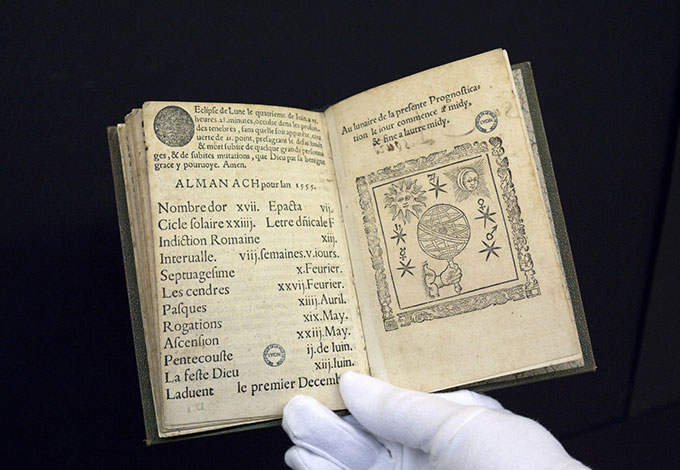 Eclipſe de Lune le quatrieme de Iuin
heures. minutes, occulte dens les
des tenebres, ſans quelle ſoit
uerte de point, preſageant le
& mort ſubite de quelque grands
ges, & de ſubites mutations, que Dieu par ſa benigne
grace y pouruoye. Amen.
ALMANACH pour lan 1555.
Nombre dor xvii. Epacta vij.
Cicle ſolaire xxiiij. Letre dñicale F
Indiction Romaine xiij.
Interualle. viij.ſemaines.v.iours.
Septuageſime x.Feurier.
Les cendres xxvij.Feurier.
Paſques xiiij.Auril.
Rogations xix.May.
Aſcenſion xxiij.May.
Pentecouſte ij.de Iuin.
La feſte Dieu xiij.Iuin.
Laduent le premier Decemb
LYON
Au lunaire de la preſente Prognoſtica-
tion le iour commence a midy,
& fine a lautre midy.
LYON